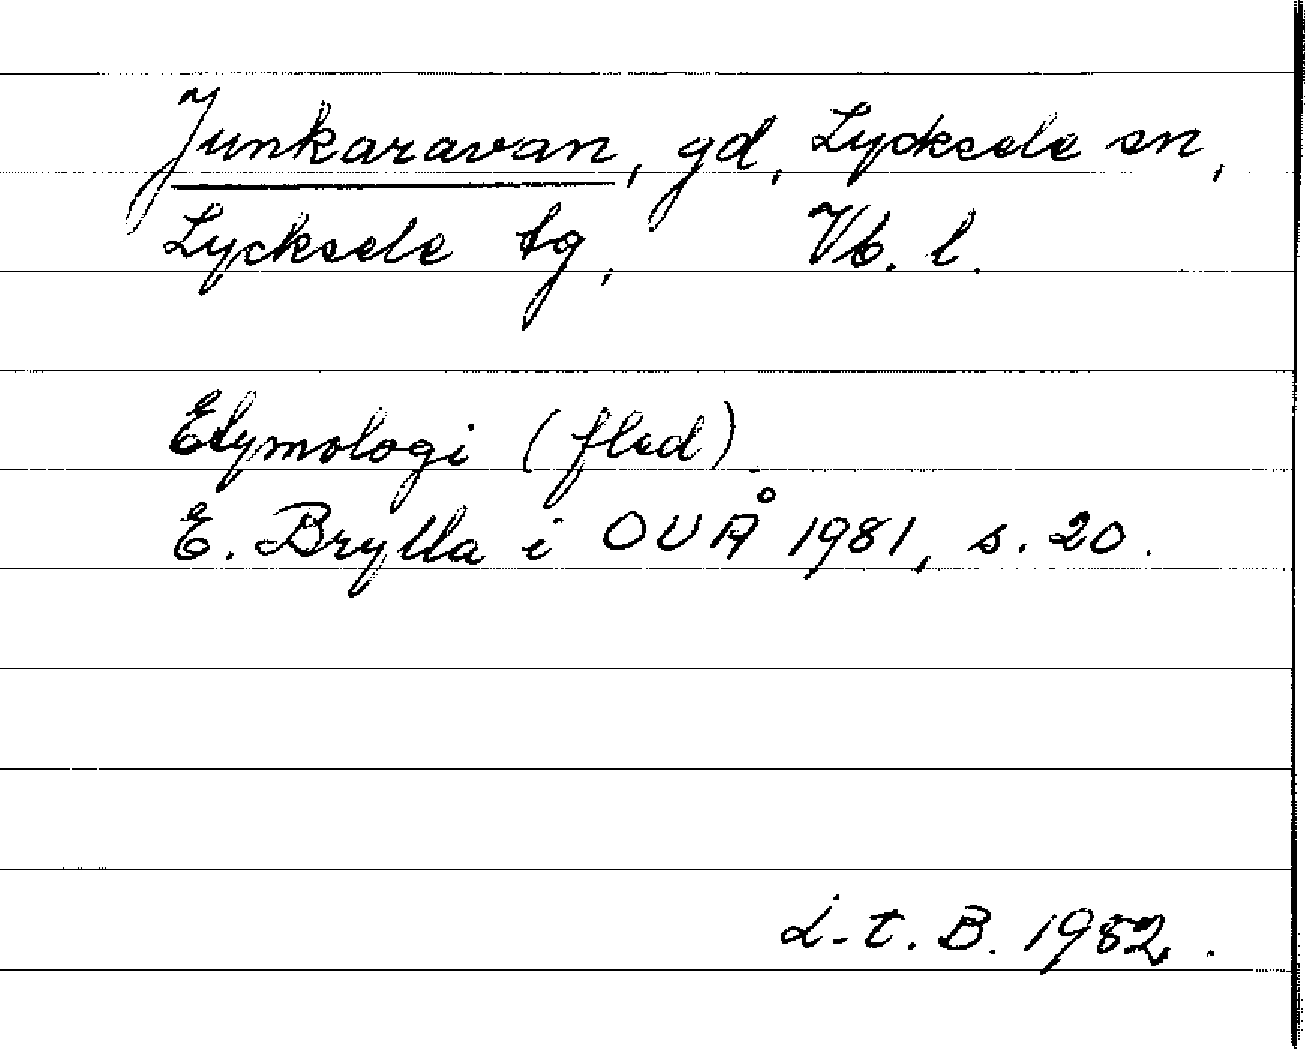 Junkaravan, gd, Lycksele sn,
Lycksele tg, Vb. l.
Etymologi (fled).
E. Brylla i OUÅ 1981, s. 20.
L-t. B. 1982.